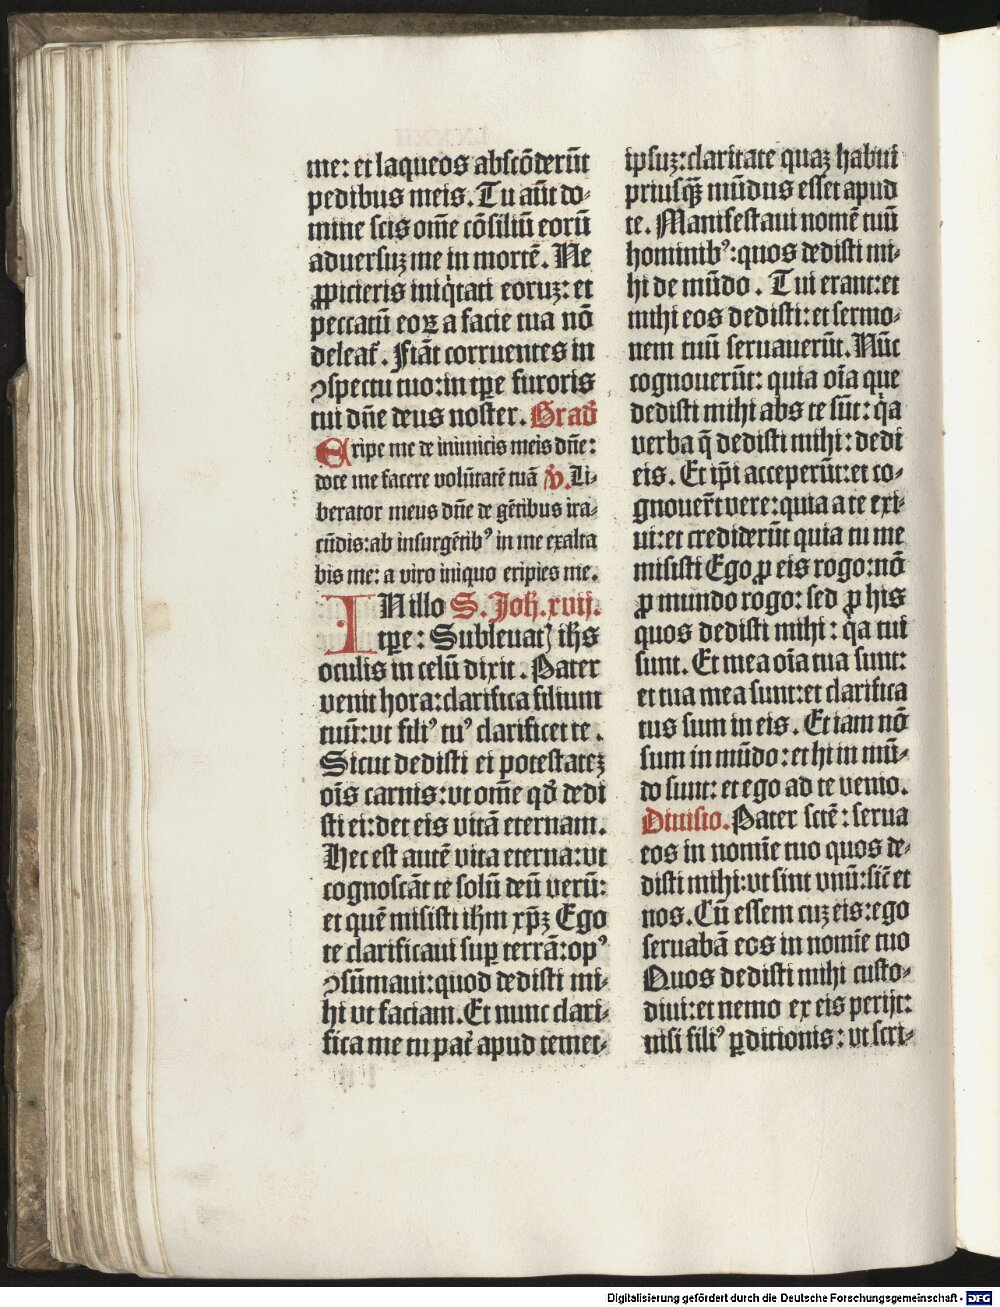 me: et laqueos abscõderũt
pedibus meis. Tu aũt do-
mine scis om̃e cõsiliũ eorũ
aduersuz me in mortẽ. Ne
ꝓpicieris iniq̇tati eoruz: et
peccatũ eoꝝ a facie tua nõ
deleat̃. Fiãt corruentes in
ↄspectu tuo: in tp̃e furoris
tui dñe deus noster. Grad̃
Eripe me de inimicis meis dñe:
doce me facere volũtatẽ tuã v̾. Li-
berator meus dñe de gẽtibus ira-
cũdis: ab insurgẽtibꝰ in me exalta
bis me: a viro iniquo eripies me.
INillo S. Joh̃. xvij.
tp̃e: Subleuatꝭ ih̃s
oculis in celũ dixit. Pater
venit hora: clarifica filium
tuũ: vt filiꝰ tuꝰ clarificet te.
Sicut dedisti ei potestatez
oĩs carnis: vt om̃e qd̃ dedi
sti ei: det eis vitã eternam.
Hec est autẽ vita eterna: vt
cognoscãt te solũ deũ verũ:
et quẽ misisti ih̃m xp̃z Ego
te clarificaui suꝑ terrã: opꝰ
ↄsũmaui: quod dedisti mi-
hi vt faciam. Et nunc clari-
fica me tu pat̃ apud temet-
ipsuz: claritate quaz habui
priusq̃ꝫ mũdus esset apud
te. Manifestaui nomẽ tuũ
hominibꝰ: quos dedisti mi-
hi de mũdo. Tui erant: et
mihi eos dedisti: et sermo-
nem tuũ seruauerũt. Nũc
cognouerũt: quia oĩa que
dedisti mihi abs te sũt: q̇a
verba q̃ dedisti mihi: dedi
eis. Et ip̃i acceperũt: et co-
gnouer̃t vere: quia a te exi-
ui: et crediderũt quia tu me
misisti Ego ꝓ eis rogo: nõ
ꝓ mundo rogo: sed ꝓ his
quos dedisti mihi: q̇a tui
sunt. Et mea oĩa tua sunt:
et tua mea sunt: et clarifica
tus sum in eis. Et iam nõ
sum in mũdo: et hi in mũ-
do sunt: et ego ad te venio.
Diuisio. Pater sctẽ: serua
eos in nomĩe tuo quos de-
disti mihi: vt sint vnũ: sic̃ et
nos. Cũ essem cuz eis: ego
seruabã eos in nomĩe tuo
Quos dedisti mihi custo-
diui: et nemo ex eis perijt:
nisi filiꝰ ꝑditionis: vt scri-
Digitalisierung gefördert durch die Deutsche Forschungsgemeinschaft - DFG